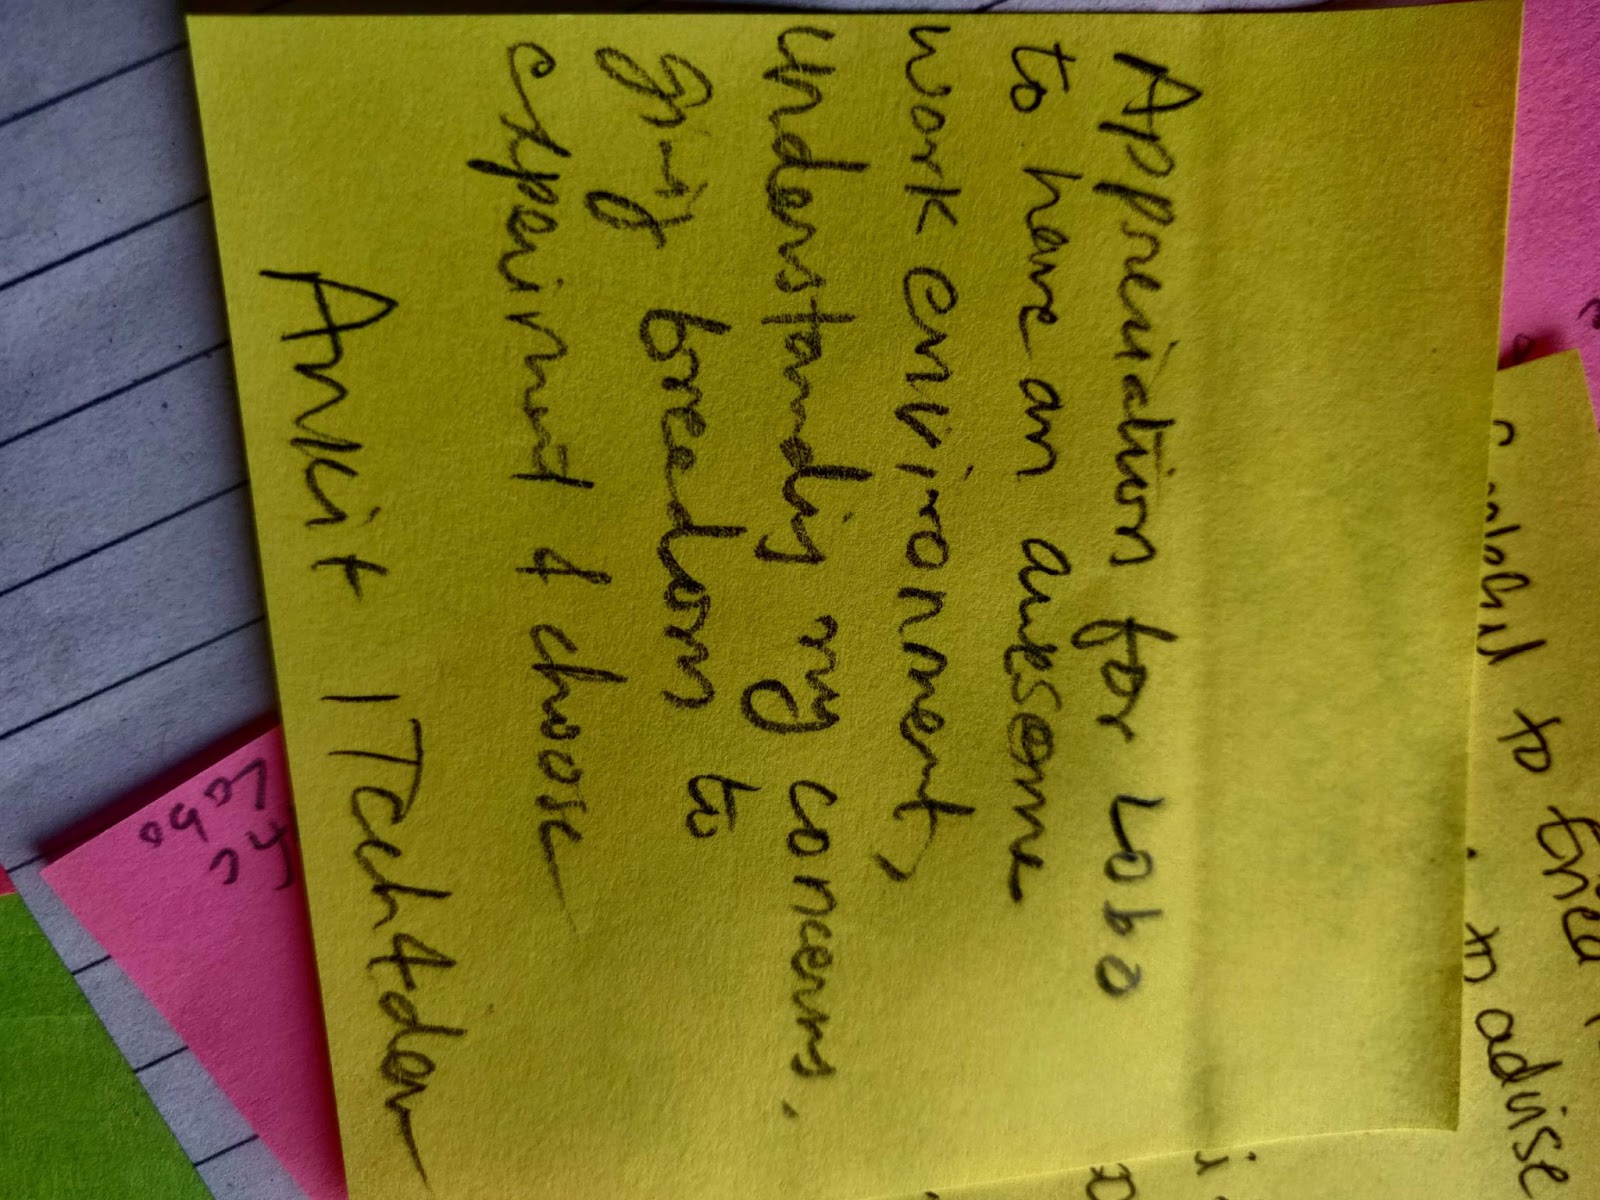 Appreciation for Lobo
to have an awesome
work environment,
understandig my concerns.
givig freedom to
experiment & choose
Ankit ITech4dev
Lobo
to
in advise